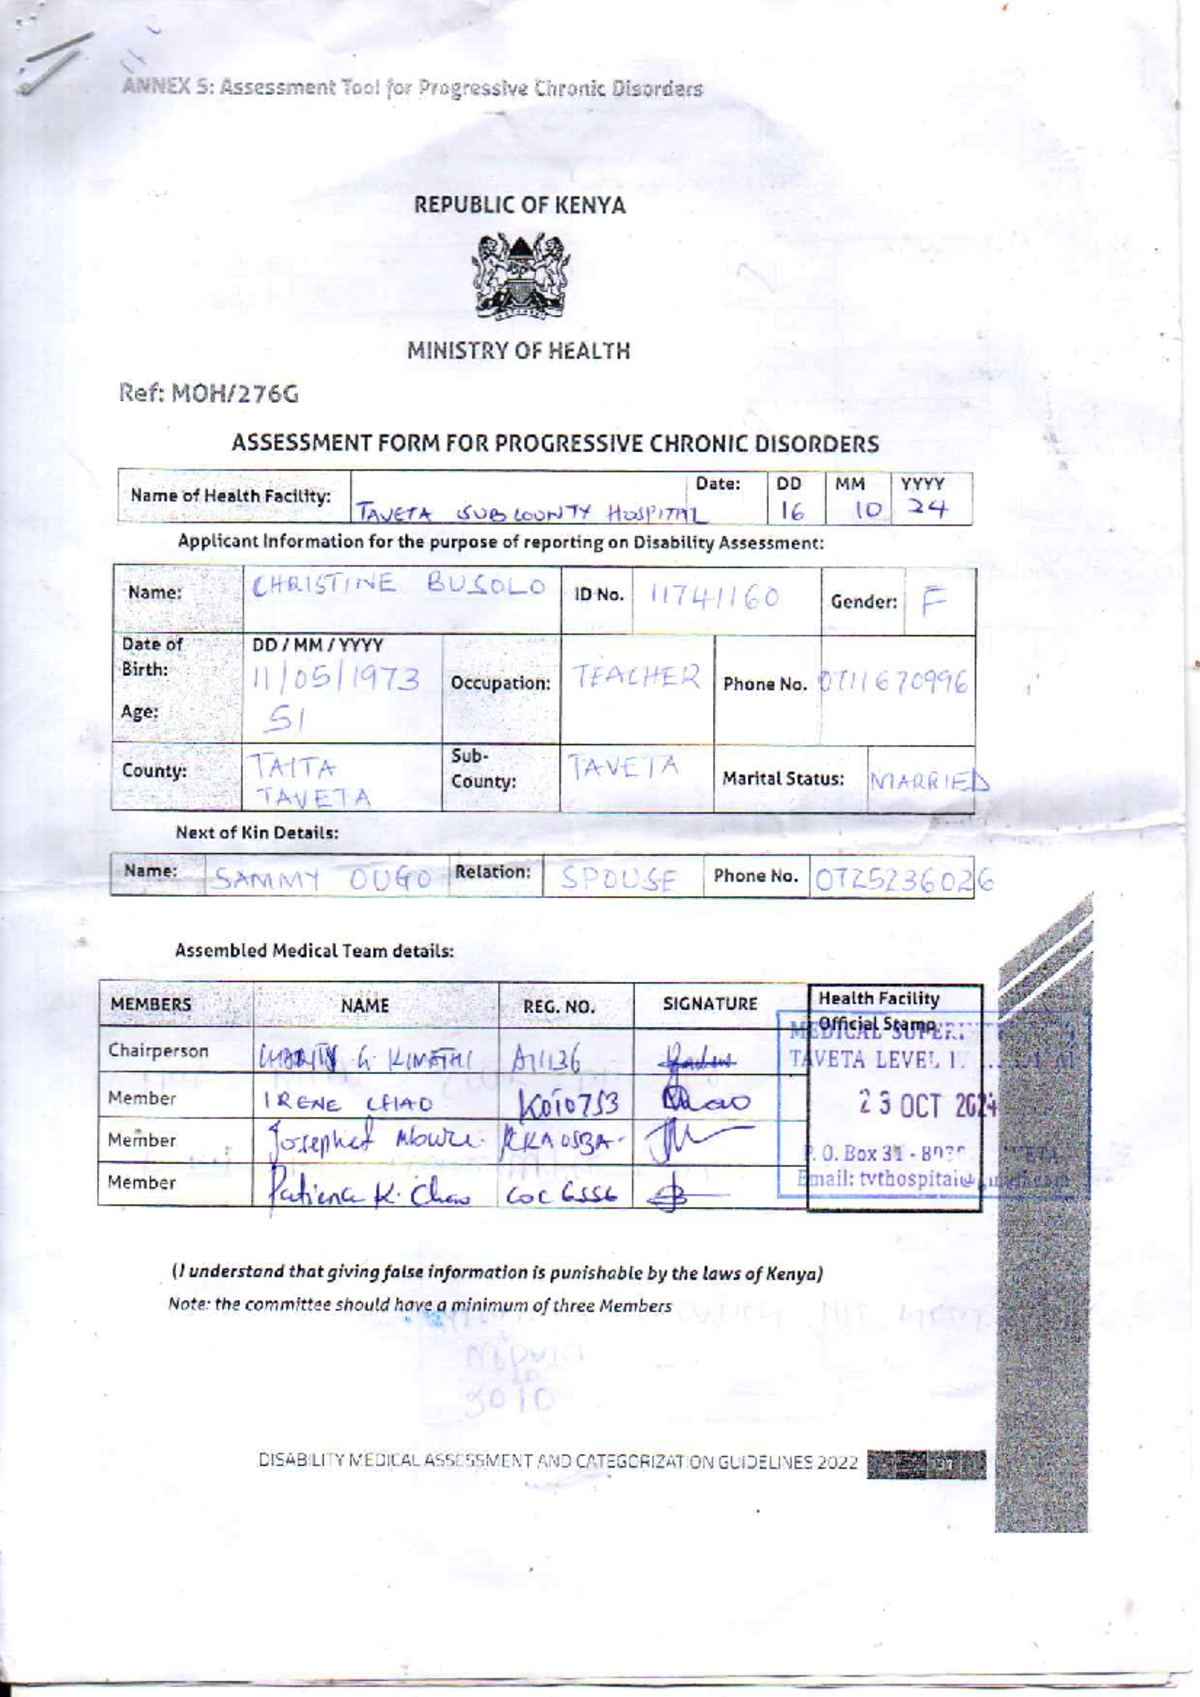 ANNEX 5: Assessment Tool for Progressive Chronic Disorders
REPUBLIC OF KENYA
MINISTRY OF HEALTH
Ref: MOH/276G
ASSESSMENT FORM FOR PROGRESSIVE CHRONIC DISORDERS
Name of Health Facility: TAVETA SUBCOUNTY HOSPITAL Date: DD MM YYYY
16 10 24
Applicant Information for the purpose of reporting on Disability Assessment:
Name: CHRISTINE BUSOLO ID No. 11741160 Gender: F
Date of Birth: DD / MM / YYYY
11/05/1973 Occupation: TEACHER Phone No. 0711670996
Age: 51
County: TAITA TAVETA Sub-County: TAVETA Marital Status: MARRIED
Next of Kin Details:
Name: SAMMY OUGO Relation: SPOUSE Phone No. 0725236026
Assembled Medical Team details:
MEMBERS NAME REG. NO. SIGNATURE Health Facility Official Stamp
Chairperson CHARITY G. KIMATHI A11136
Member IRENE CHAO K010753
Member
Member Patience K. Chao COC 6556
TAVETA LEVEL
23 OCT 2024
P. O. Box 31 -
Email:
(I understand that giving false information is punishable by the laws of Kenya)
Note: the committee should have a minimum of three Members
DISABILITY MEDICAL ASSESSMENT AND CATEGORIZATION GUIDELINES 2022